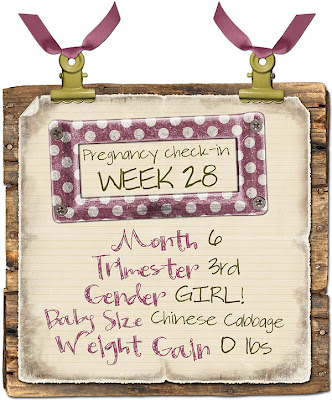 Pregnancy check-in
WEEK 28
Month 6
Trimester 3rd
Gender GIRL!
Baby Size Chinese Cabbage
Weight Gain 0 lbs